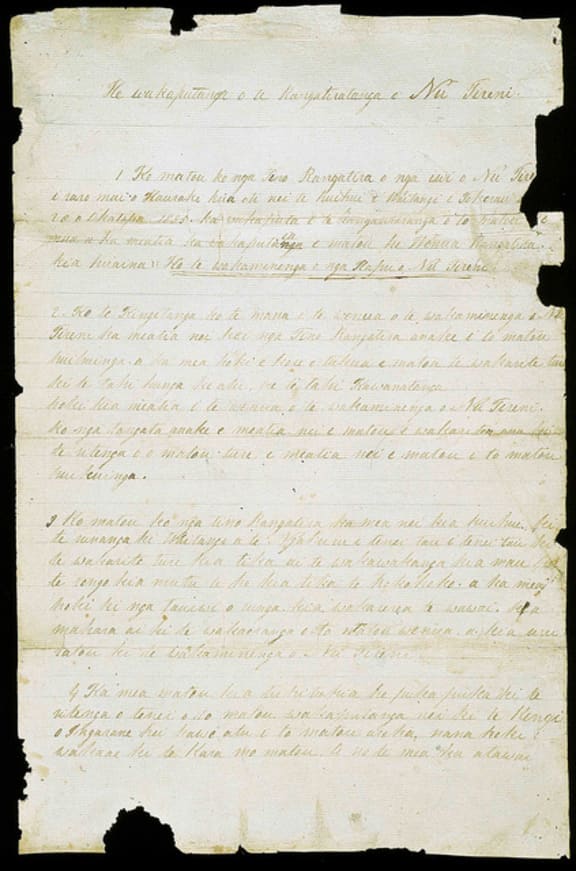 He wakaputanga o te Rangatiratanga o Nu Tireni.
1 Ko matou ko nga Tino Rangatira o nga iwi o Nu Tire
i raro mai o Haurake kua oti nei te huihui i Waitangi i Tokerau
28 o Oketopa 1835. ka wakaputa i te Rangatiratanga o to matou
ka meatia ka wakaputaia e matou he Wenua Rangatira.
kia huaina "Ko te wakaminenga o nga Hapu o Nu Tireni"
2. Ko te Kingitanga ko te mana i te wenua o te wakaminenga o Nu
Tireni ka meatia nei kei nga Tino Rangatira anake i to matou
huihuinga. a ka mea hoki e kore e tukua e matou te wakarite ture
ki te tahi hunga ke atu, me te tahi Kawanatanga
hoki kia meatia i te wenua o te wakaminenga o Nu Tireni.
ko nga tangata anake e meatia nei e matou e wakarite ana ki
te ritenga o o matou ture e meatia nei e matou i to matou
huihuinga.
3 Ko matou ko nga tino Rangatira ka mea nei kia huihui ki
te runanga ki Waitangi a te Ngahuru i tenei tau i tenei tau ki
te wakarite ture kia tika ai te wakawakanga kia mau
te rongo kia mutu te he kia tika te hokohoko. a ka mea
hoki ki nga tauiwi o runga. kia wakarerea te wawai. kia
mahara ai ki te wakaoranga o to matou wenua. a kia uru
ratou ki te wakaminenga o Nu Tireni.
4 Ka mea matou kia tuhituhia he pukapuka ki te
ritenga o tenei o to matou wakaputanga nei ki te Kingi
o Ingarani hei kawe atu i to matou aroha. nana hoki i
wakaae ki te Kara mo matou. a no te mea ka atawai